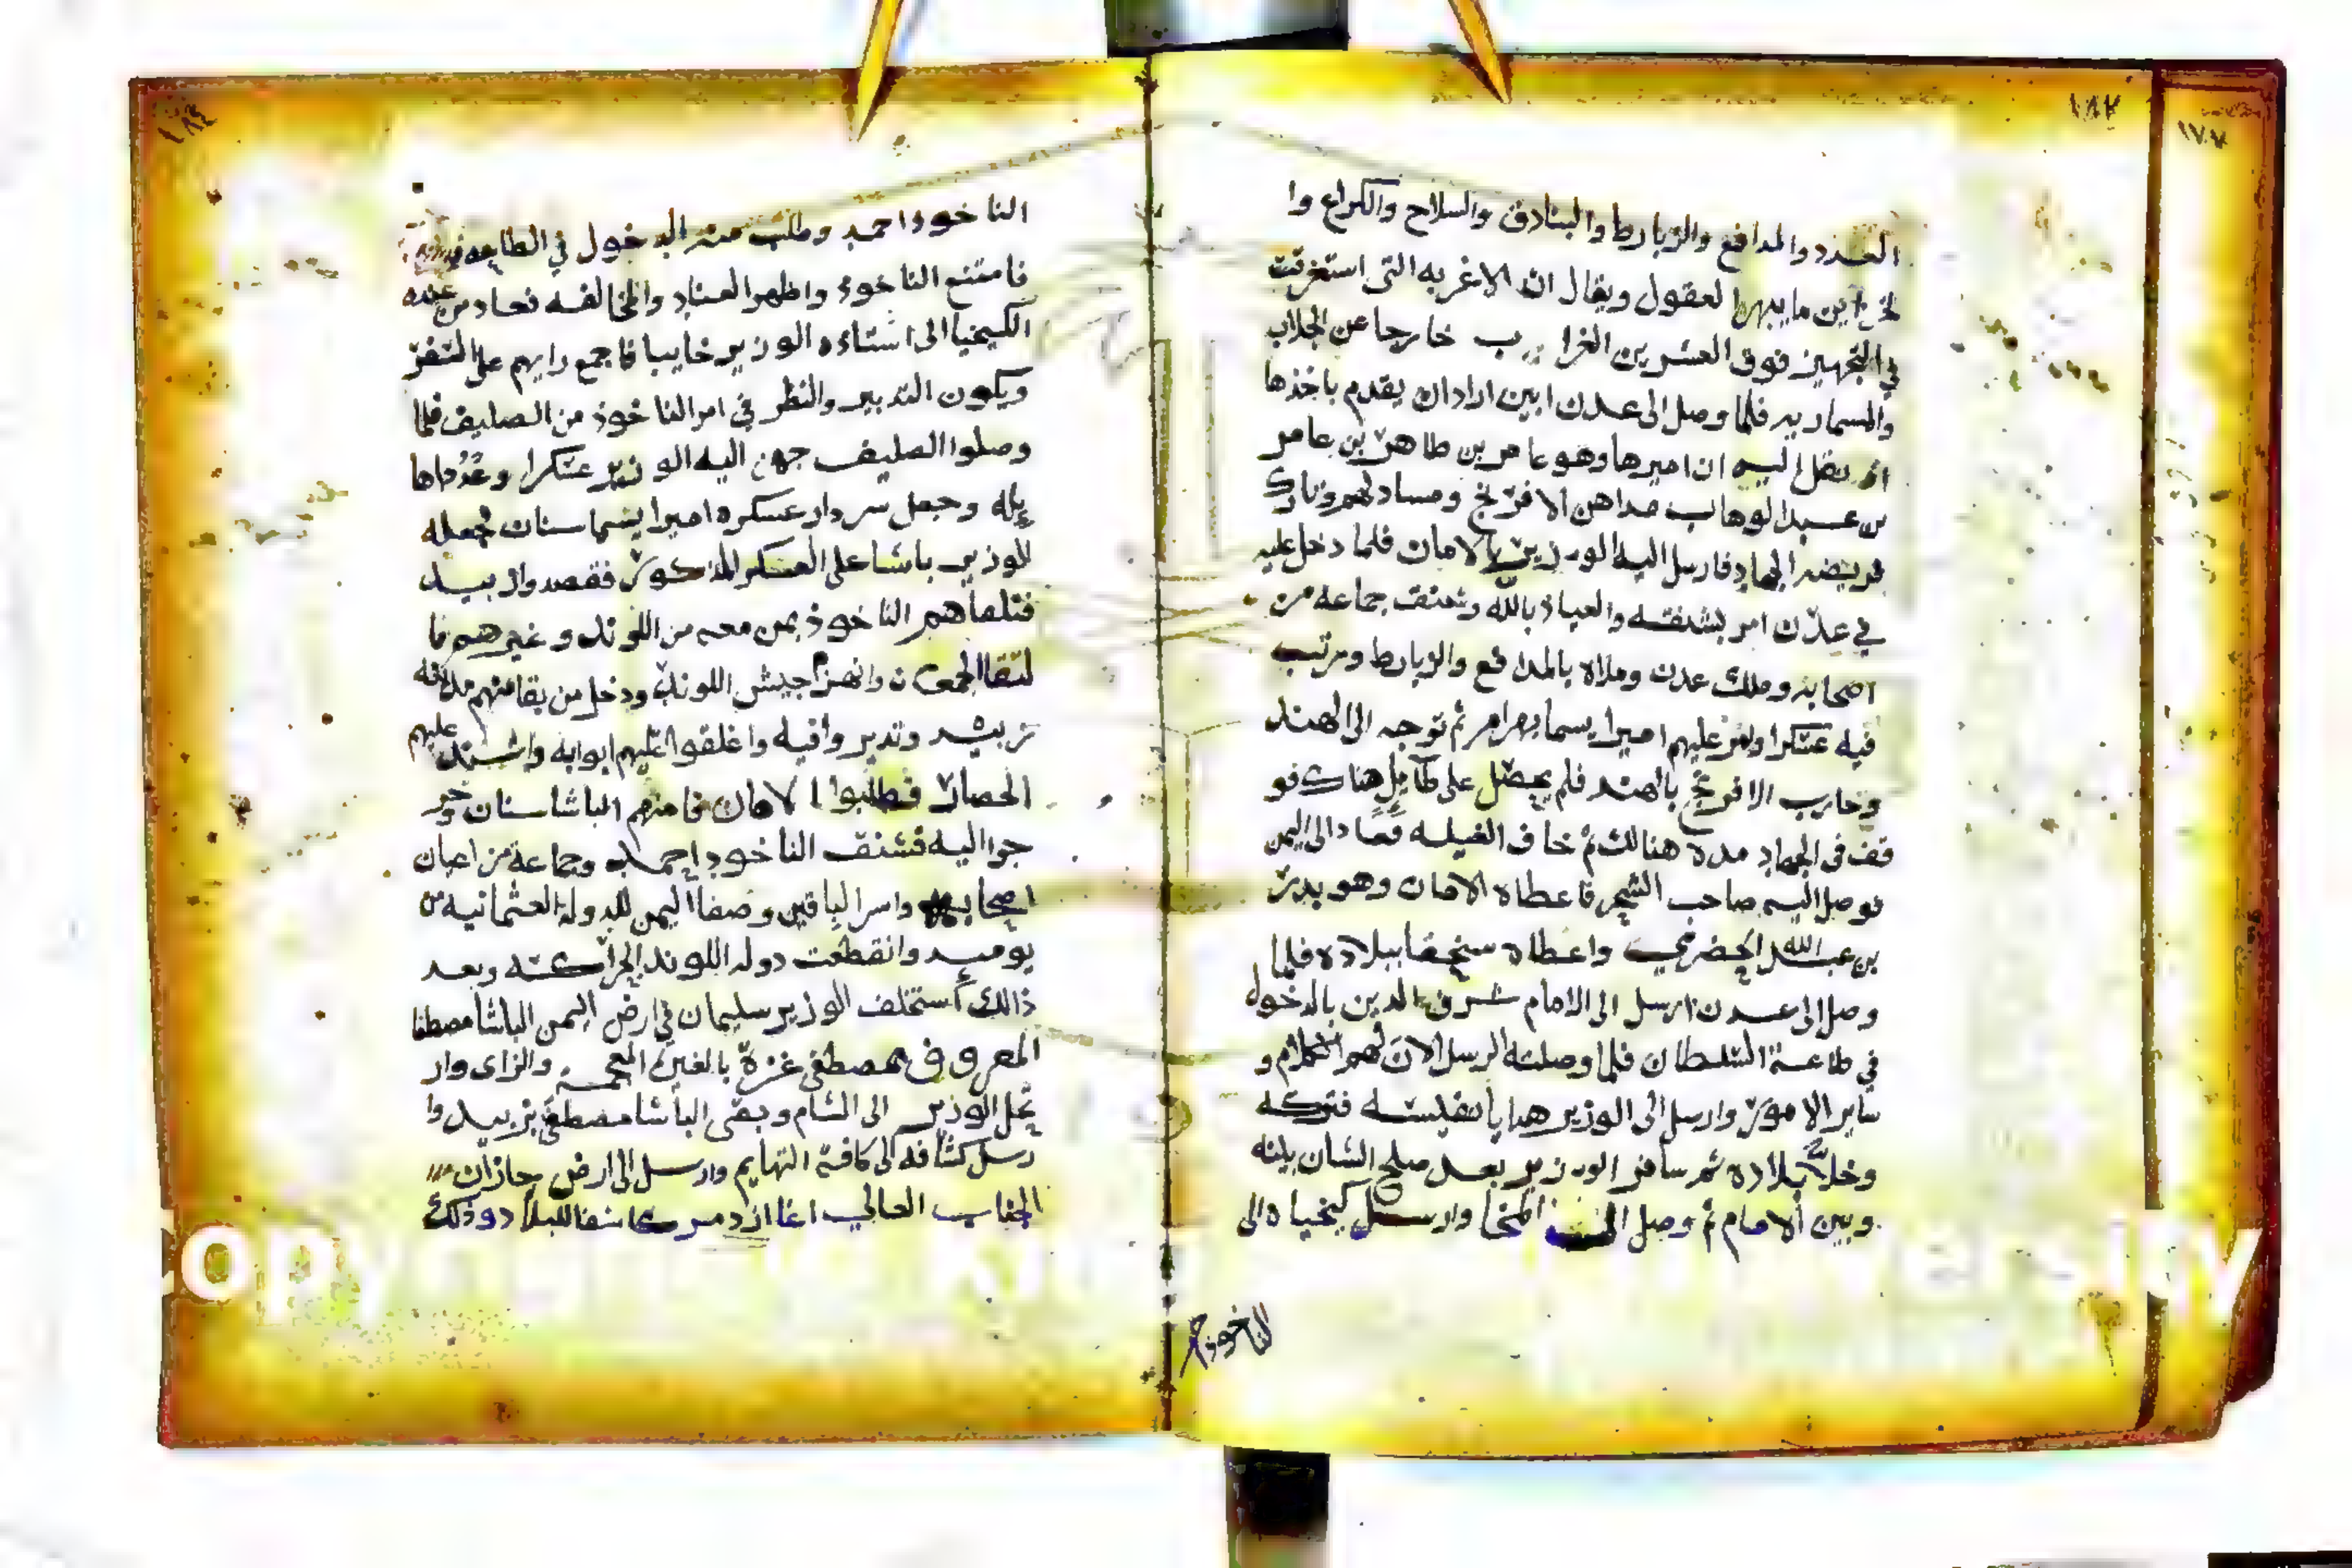 ١٨٣
١٧٧
العدد والمدافع والزبارط والبنادق والسلاح والكراع وا
لخزاين ما يبهر العقول ويقال ان الاغربه التى استغرقت
في التجهيز فوق العشرين الغراب خارجا عن الجلاب
والمسماريه فلما وصل الى عدن ابين اراد ان يقدم باخذها
انه نقل اليه ان اميرها وهو عامر بن طاهر بن عامر
بن عبد الوهاب مداهن الافرنج ومساد لهم وتارك
فريضه الجهاد فارسل اليه الوزير بالامان فلما دخل عليه
في عدن امر بشنقه والعياذ بالله وشنق جماعه من
اصحابه وملك عدن وملاه بالمدافع والزبارط ومرتب
فيه عسكرا وامر عليهم اميرا يسما بهرام ثم توجه الى الهند
وحارب الافرنج بالهند فلم يحصل على طايل هناك فو
قف فى الجهاد مده هنالك ثم خاف الغيله فعاد الى اليمن
فوصل اليه صاحب الشحر فاعطاه الامان وهو بدر
بن عبد الله الحضرمي واعطاه سنجقا ببلاده فلما
وصل الى عدن ارسل الى الامام شرف الدين بالدخول
في طاعة السلطان فلما وصلته الرسل الان لهم الكلام و
ساير الامور وارسل الى الوزير هدايا نفيسه فتركه
وخلا بلاده ثم سافر الوزير بعد صلح الشان بينه
وبين الامام ثم وصل المخا وارسل كيخياه الى
الناخوذ احمد
١٨٤
الناخوذ احمد وطلب منه الدخول في الطاعه
فامتنع الناخوذ واظهر العناد والمخالفه فعاد من عنده
الكيخيا الى استاده الوزير خايبا فاجمع رايهم على التفر
ويكون التدبير والنظر في امر الناخوذ من الصليف فلما
وصلوا الصليف جهز اليه الوزير عسكرا وعددا ها
يله وجعل سردار عسكره اميرا يسما سنان جعله
الوزير باشا على العسكر المذكور فقصدوا زبيد
فتلقاهم الناخوذ بمن معه من اللوند وغيرهم فا
لتقا الجمعان وانهزم جيش اللوند ودخل من بقا منهم مدينه
زبيد وتديروا فيه واغلقوا عليهم ابوابه واشتد عليهم
الحصار فطلبوا الامان فامنهم الباشا سنان وخر
جوا اليه فشنق الناخوذ احمد وجماعة من اعيان
اصحابه واسر الباقين وصفا اليمن للدولة العثمانيه من
يوميد وانقطعت دوله اللوند الجراكسه وبعد
ذالك استخلف الوزير سليمان في ارض اليمن الباشا مصطفا
المعروف بمصطفى غزة بالغين المعجمه والزاى وار
تحل الوزير الى الشام وبقى الباشا مصطفى بزبيد وا
رسل كشافه الى كافة التهايم وارسل الى ارض جازان
الجناب العالي اغا ازدمر كاشفا للبلاد وذلك